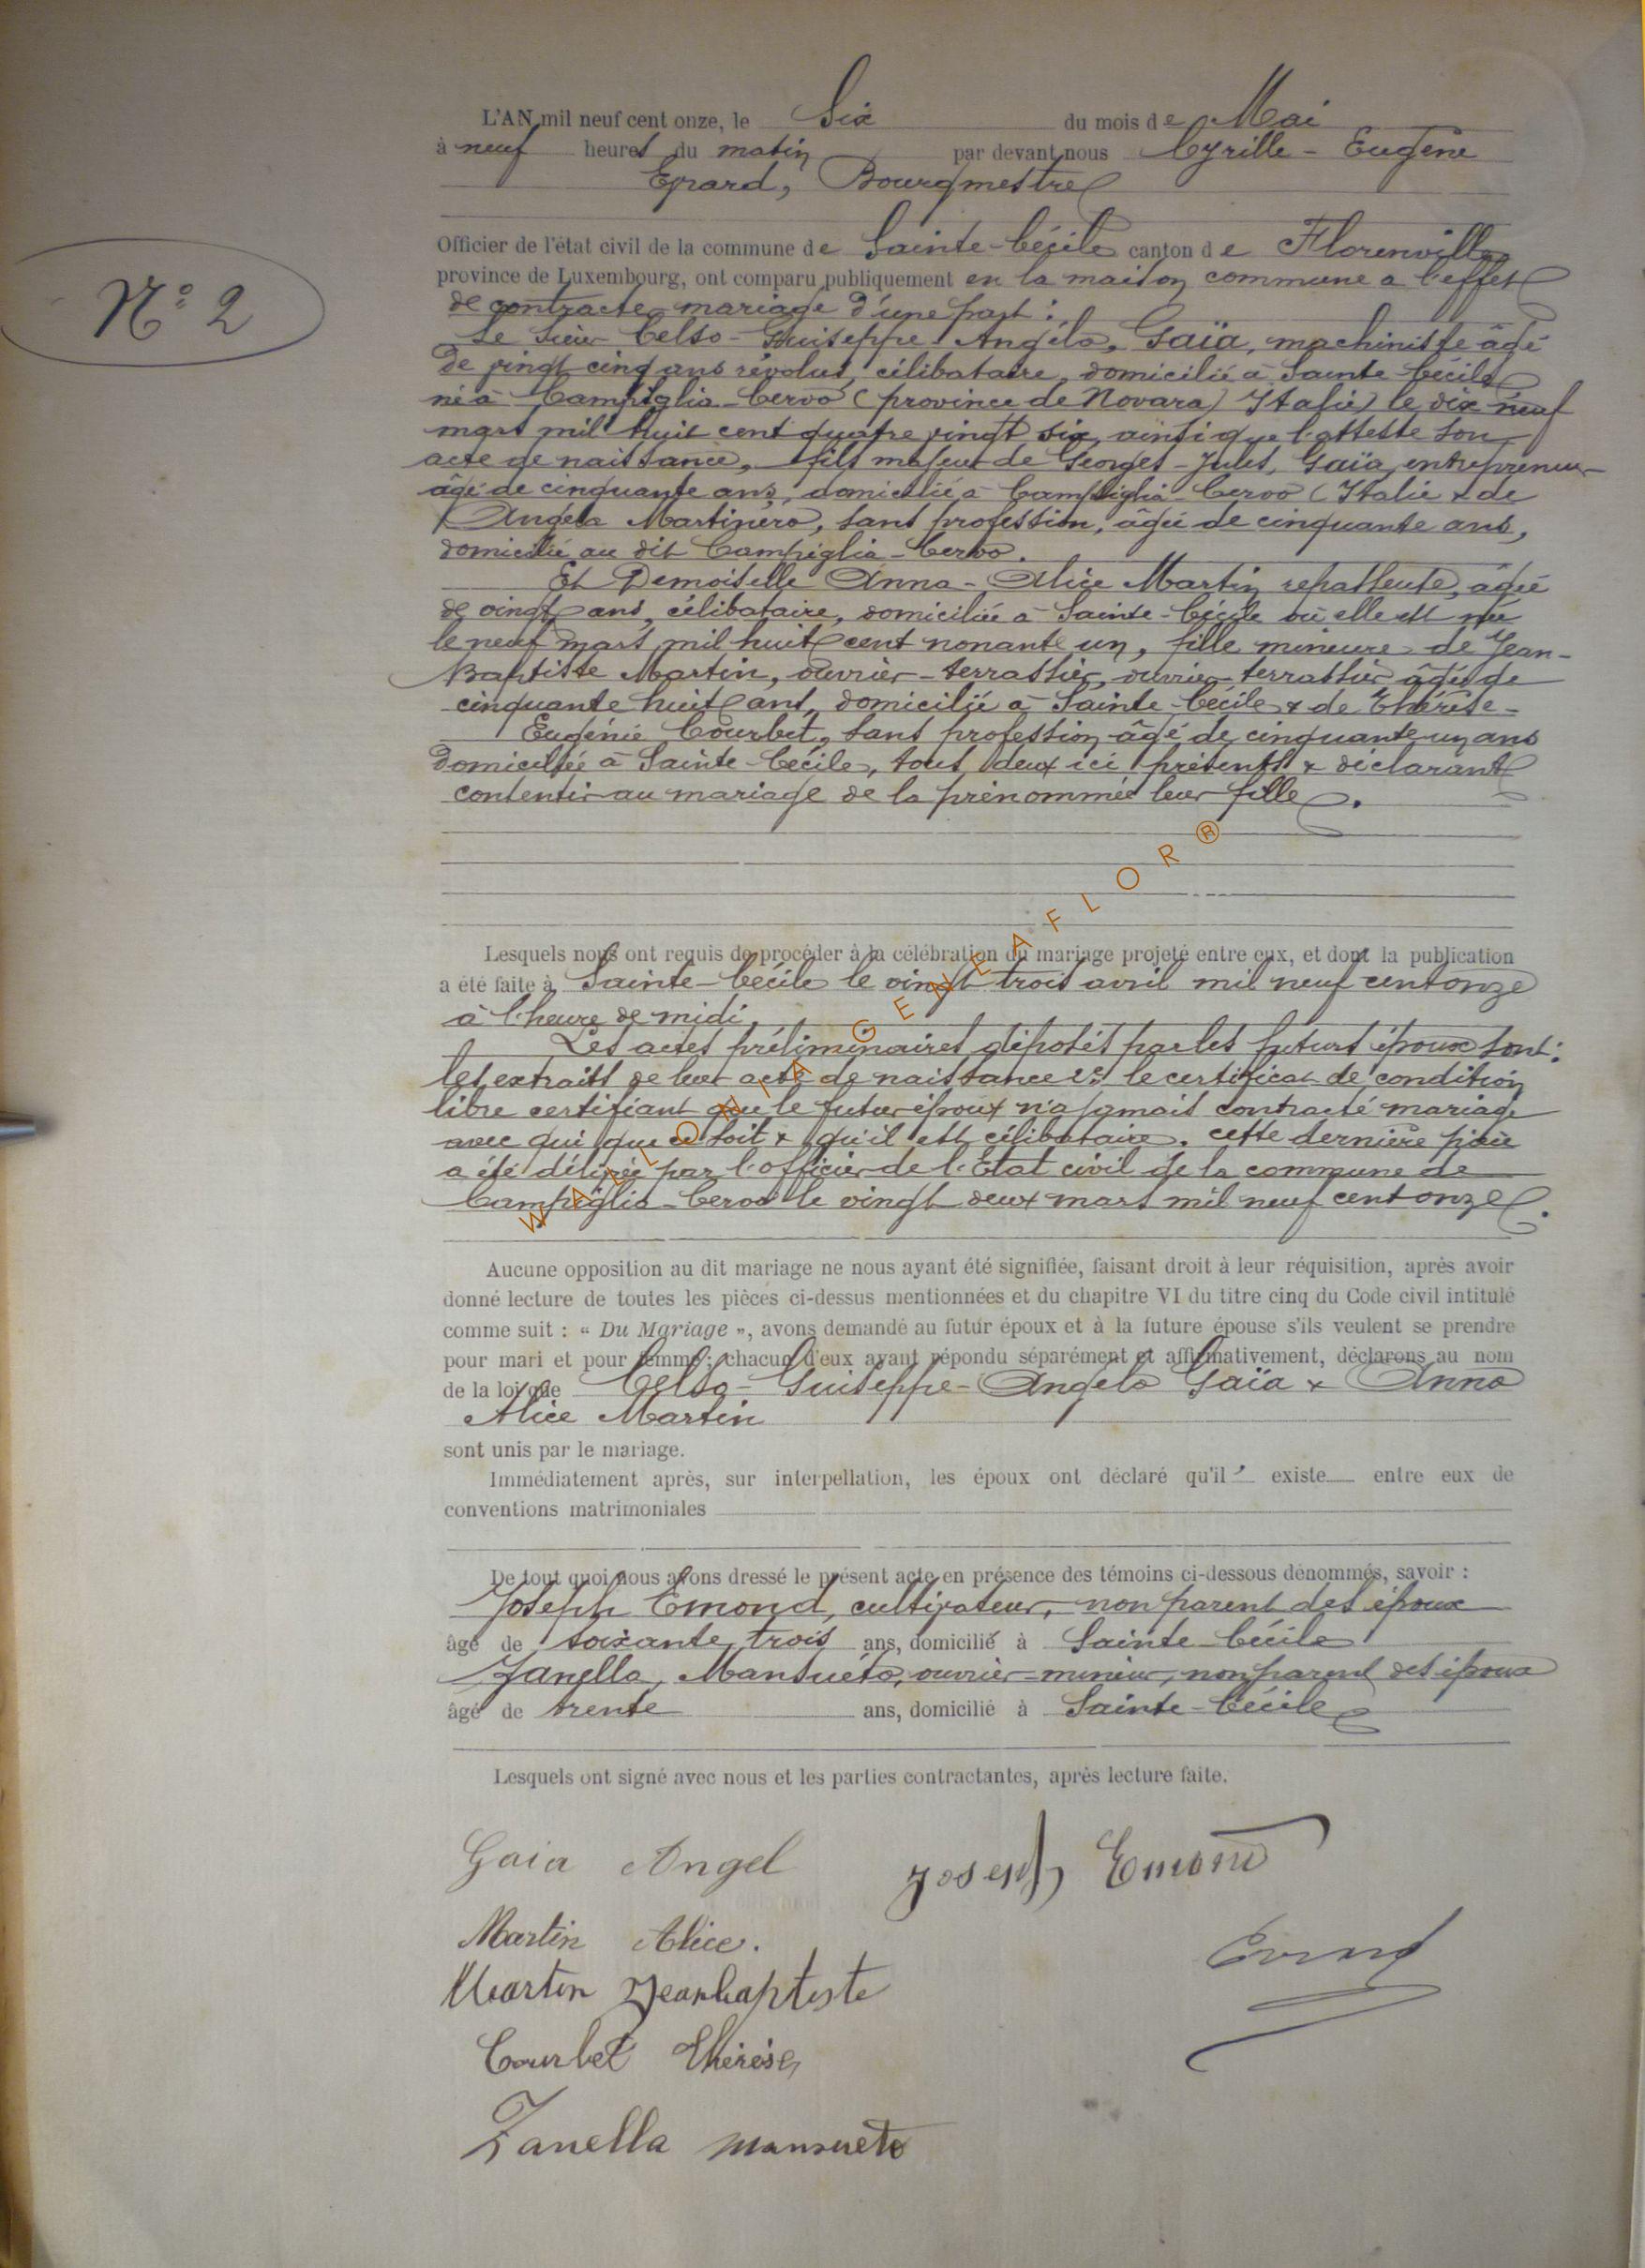 L'AN mil neuf cent onze, le Six du mois de Mai
à neuf heures du matin par devant nous Cyrille - Eugène
Evrard, Bourgmestre
Officier de l'état civil de la commune de Sainte-Cécile canton de Florenville
province de Luxembourg, ont comparu publiquement en la maison commune a l'effet
N° 2
de contracter mariage d'une part :
Le Sieur Celso - Guiseppe - Angélo, Gaïa, machiniste âgé
de vingt cinq ans révolus, célibataire, domicilié à Sainte Cécile
né à Campiglia - Cervo (province de Novara) Italie) le dix neuf
mars mil huit cent quatre vingt six, ainsi que l'atteste son
acte de naissance, fils majeur de Georges - Jules, Gaïa, entrepreneur
âgé de cinquante ans, domicilié à Campliglia - Cervo (Italie & de
Angela Martinéro, sans profession, âgée de cinquante ans,
domicilié au dit Campiglia - Cervo.
Et Demoiselle Anna - Alice Martin repasseuse, âgée
de vingt ans, célibataire, domiciliée à Sainte - Cécile où elle est née
le neuf mars mil huit cent nonante un, fille mineure de Jean -
Baptiste Martin, ouvrier - terrassier, ouvrier terrassier âgé de
cinquante huit ans, domicilié à Sainte - Cécile & de Thérèse -
Eugénie Courbet, sans profession âgé de cinquante un ans
domiciliée à Sainte - Cécile, tous deux ici présents & déclarant
consentir au mariage de la prénommée leur fille.
Lesquels nous ont requis de procéder à la célébration du mariage projeté entre eux, et dont la publication
a été faite à Sainte - Cécile le vingt trois avril mil neuf cent onze
à l'heure de midi.
Les actes préliminaires déposés par les futurs époux sont :
les extraits de leur acte de naissance 2° le certificat de condition
libre certifiant que le futur époux n'a jamais contracté mariage
avec qui que ce soit & qu'il est célibataire. cette dernière pièce
a été délivrée par l'officier de l'Etat civil de la commune de
Campiglia - Cervo le vingt deux mars mil neuf cent onze.
WALLONIA GENEAFLOR®
Aucune opposition au dit mariage ne nous ayant été signifiée, faisant droit à leur réquisition, après avoir
donné lecture de toutes les pièces ci-dessus mentionnées et du chapitre VI du titre cinq du Code civil intitulé
comme suit : « Du Mariage », avons demandé au futur époux et à la future épouse s'ils veulent se prendre
pour mari et pour femme ; chacun d'eux ayant répondu séparément et affirmativement, déclarons au nom
de la loi que Celso - Guiseppe - Angelo Gaïa & Anna
Alice Martin
sont unis par le mariage.
Immédiatement après, sur interpellation, les époux ont déclaré qu'il existe entre eux de
conventions matrimoniales
De tout quoi nous avons dressé le présent acte en présence des témoins ci-dessous dénommés, savoir :
Joseph Emond, cultivateur, non parent des époux
âgé de soixante trois ans, domicilié à Sainte Cécile
Zanella, Mansuéto, ouvrier - mineur, non parent des époux
âgé de trente ans, domicilié à Sainte - Cécile
Lesquels ont signé avec nous et les parties contractantes, après lecture faite.
Gaia Angel Joseph Emond
Martin Alice. Evrard
Martin Jeanbaptiste
Courbet Thérèse
Zanella mansueto